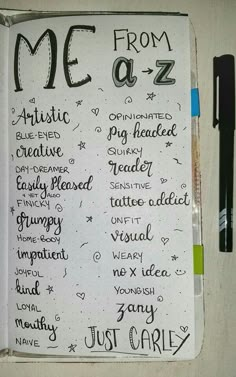 ME FROM
a → z
Artistic
BLUE-EYED
creative
DAY-DREAMER
Easily Pleased
& YET ALSO
FINICKY
grumpy
HOME-BODY
impatient
JOYFUL
kind
LOYAL
Mouthy
NAIVE
OPINIONATED
Pig-headed
QUIRKY
reader
SENSITIVE
tattoo addict
UNFIT
visual
WEARY
no x idea
YOUNGISH
zany
JUST CARLEY